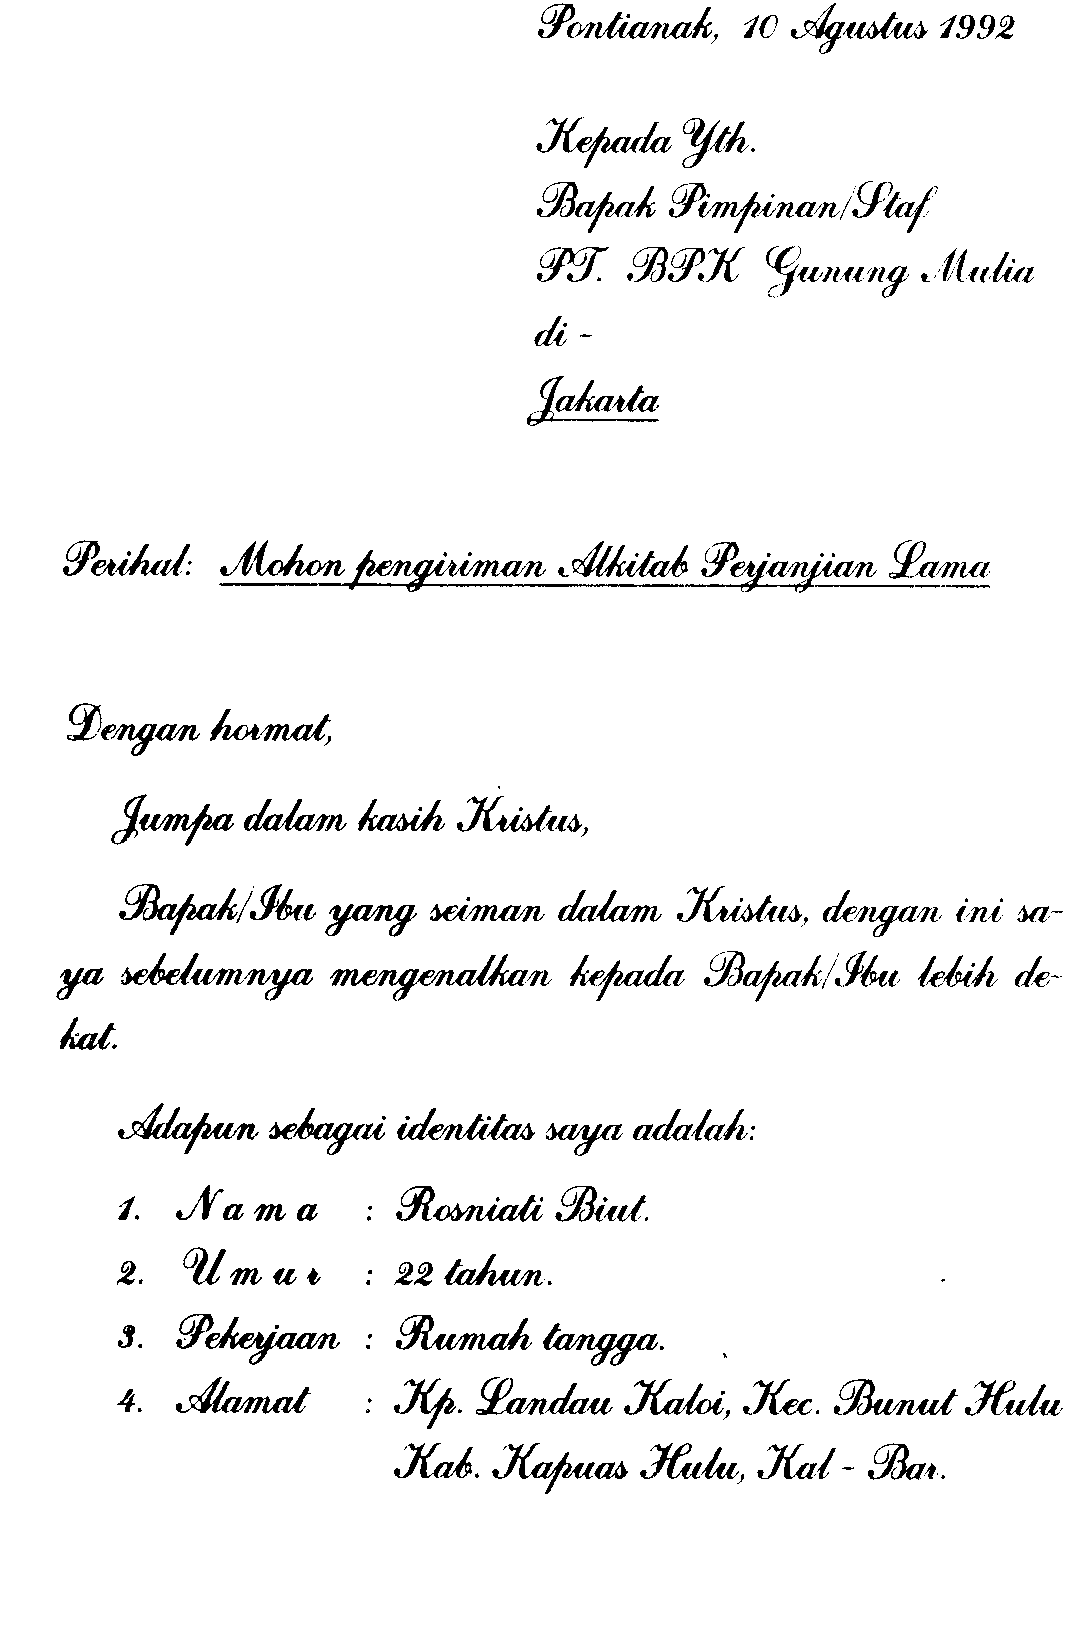 Pontianak, 10 Agustus 1992
Kepada Yth.
Bapak Pimpinan/Staf
PT. BPK Gunung Mulia
di -
Jakarta
Perihal: Mohon pengiriman Alkitab Perjanjian Lama
Dengan hormat,
Jumpa dalam kasih Kristus,
Bapak/Ibu yang seiman dalam Kristus, dengan ini sa-
ya sebelumnya mengenalkan kepada Bapak/Ibu lebih de-
kat.
Adapun sebagai identitas saya adalah:
1. N a m a : Rosniati Biut.
2. U m u r : 22 tahun.
3. Pekerjaan : Rumah tangga.
4. Alamat : Kp. Landau Kaloi, Kec. Bunut Hulu
Kab. Kapuas Hulu, Kal - Bar.